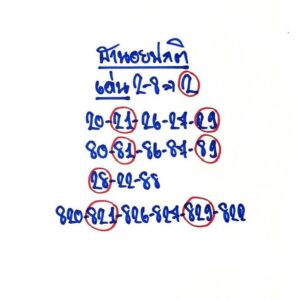 ฮานอยปกติ
เด่น 2-8→2
20-21-26-27-29
80-81-86-87-89
28-22-88
820-821-826-827-829-822